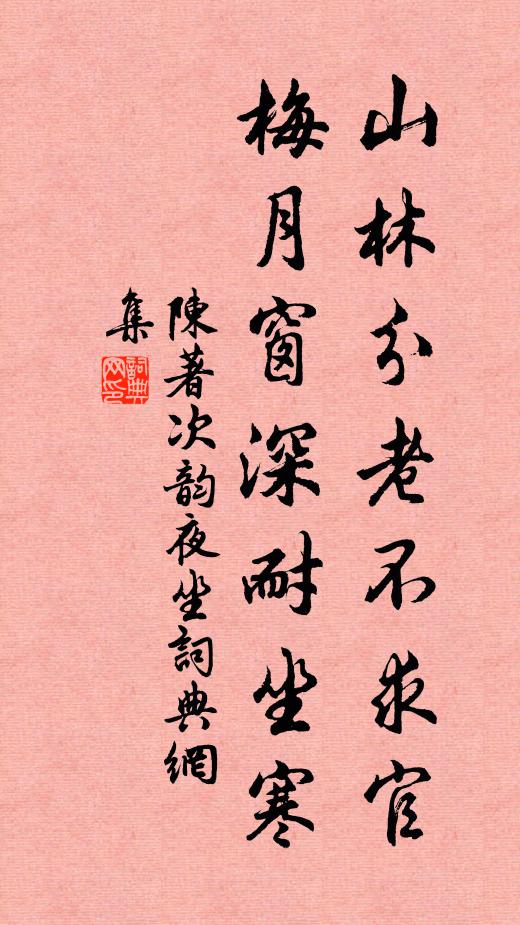 山林分老不求官
梅月窗深耐坐寒
陳著次韵夜坐詞典網
集
詞典網印